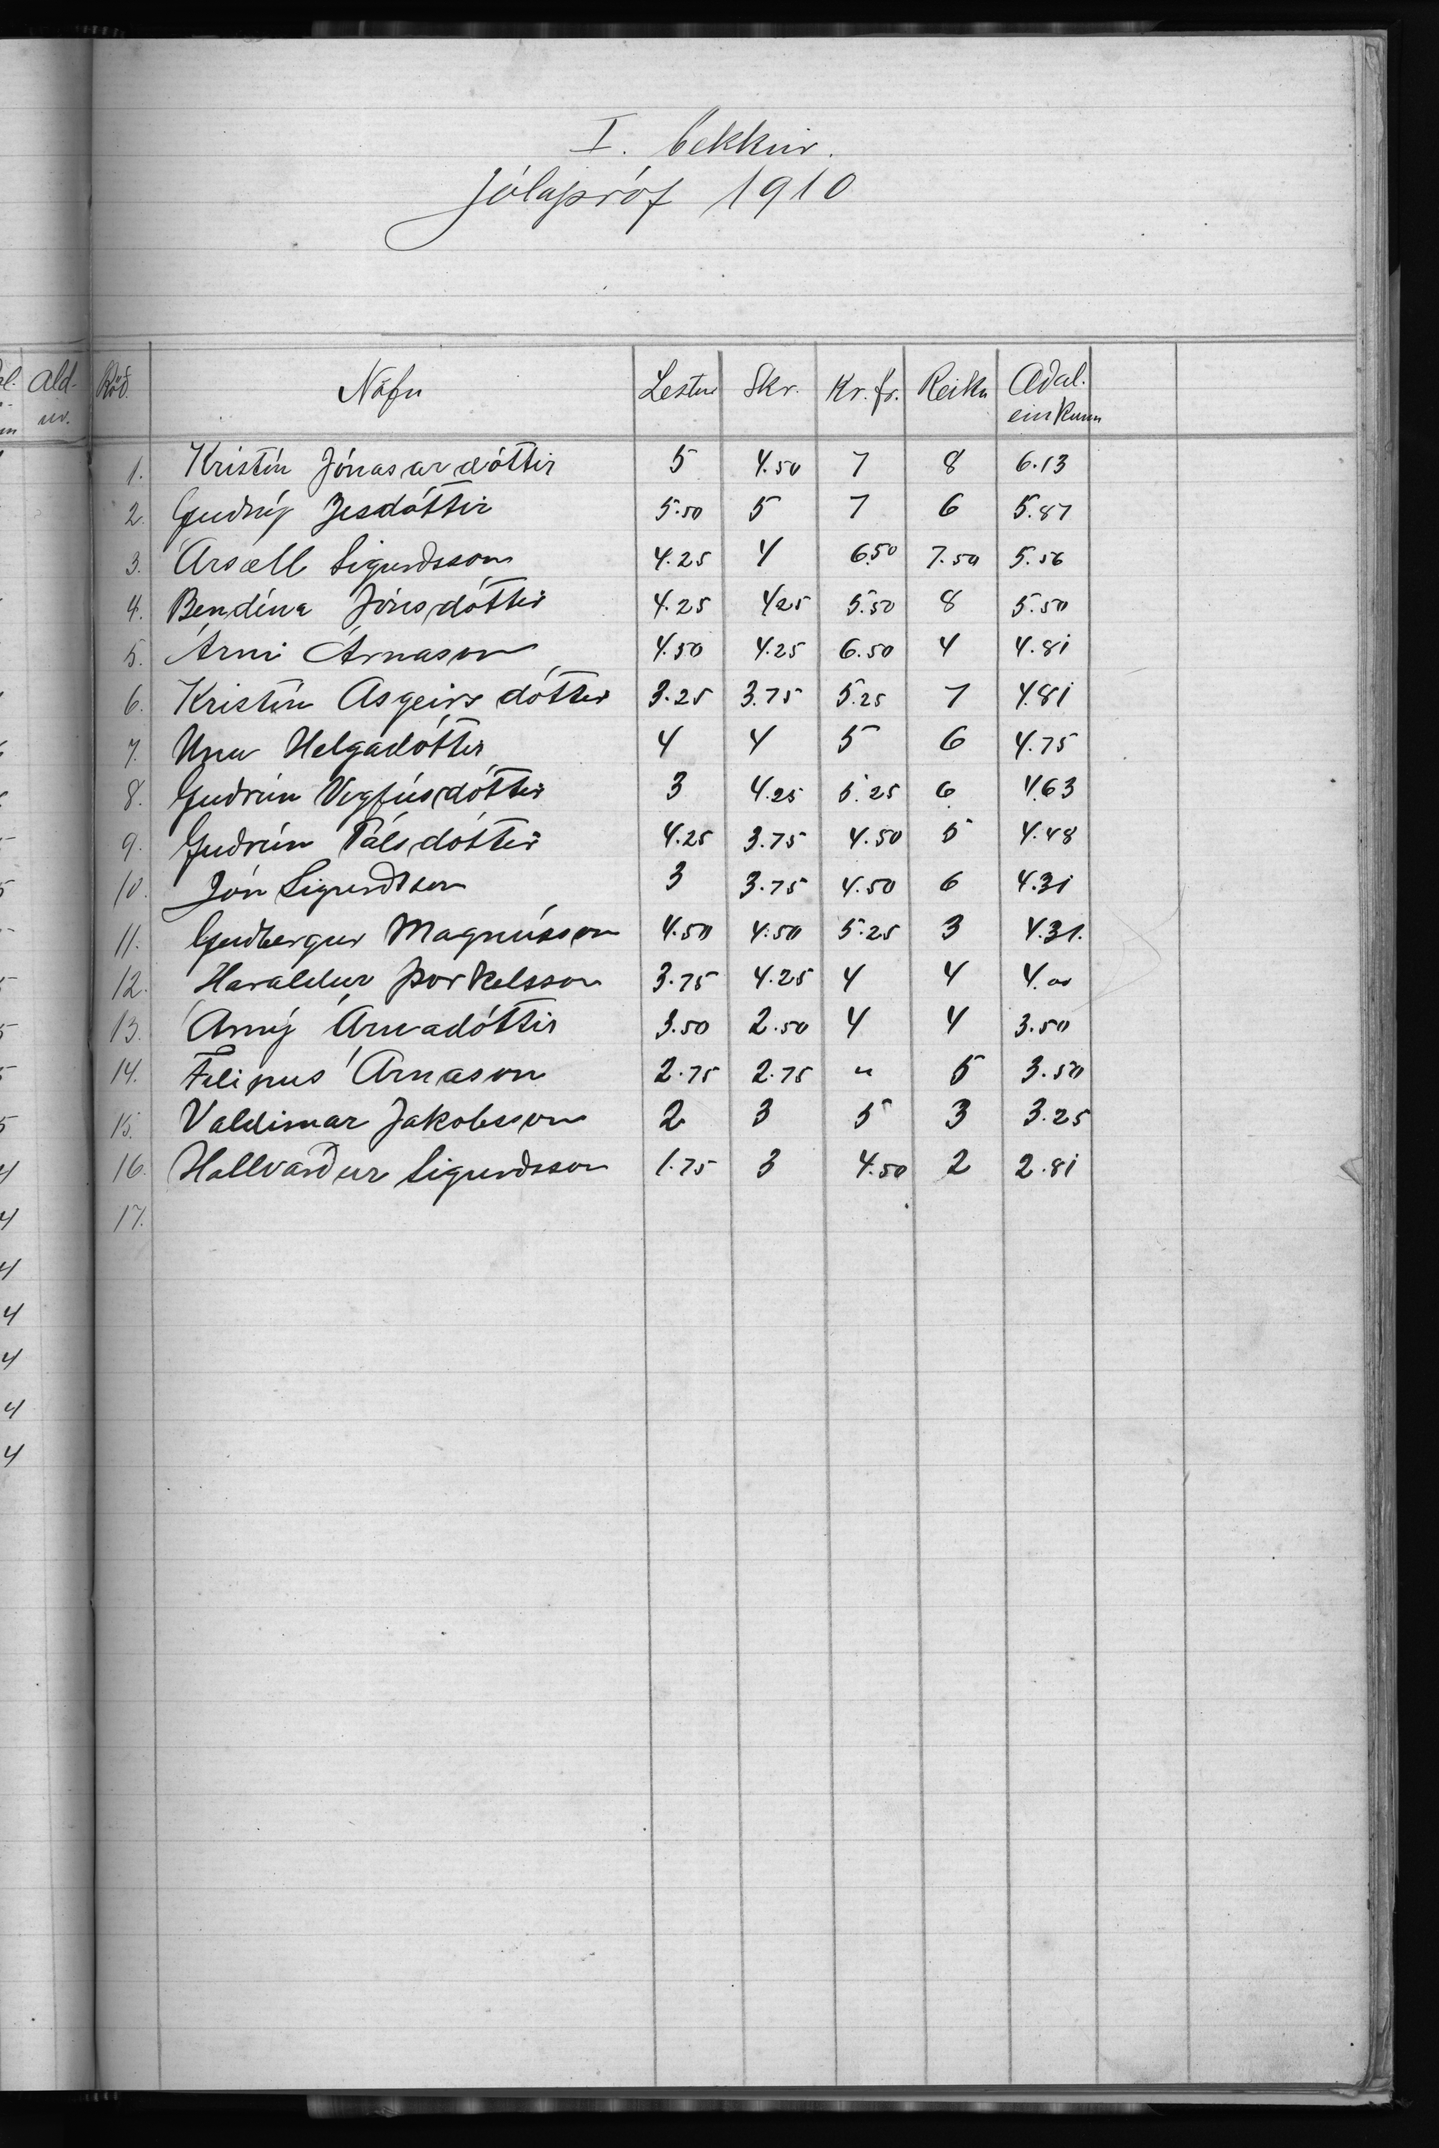 I. bekkur.
Jólapróf 1910
Röð. Nöfn Lestur Skr. Kr.fr. Reikn Aðal. einkunn
1. Kristín Jónasardóttir 5 4.50 7 8 6.13
2. Guðný Jesdóttir 5.50 5 7 6 5.87
3. Ársæll Sigurðsson 4.25 4 6.50 7.50 5.56
4. Bendína Jónsdóttir 4.25 4.25 5.50 8 5.50
5. Árni Árnason 4.50 4.25 6.50 4 4.81
6. Kristín Asgeirsdóttir 3.25 3.75 5.25 7 4.81
7. Una Helgadóttir 4 4 5 6 4.75
8. Guðrún Vigfúsdóttir 3 4.25 5.25 6 4.63
9. Guðrún Pálsdóttir 4.25 3.75 4.50 5 4.48
10. Jón Sigurðsson 3 3.75 4.50 6 4.31
11. Guðbergur Magnússon 4.50 4.50 5.25 3 4.31.
12. Haraldur Þorkelsson 3.75 4.25 4 4 4.00
13. Árný Árnadóttir 3.50 2.50 4 4 3.50
14. Filipus Árnason 2.75 2.75 " 5 3.50
15. Valdimar Jakobsson 2 3 5 3 3.25
16. Hallvarður Sigurðsson 1.75 3 4.50 2 2.81
17.